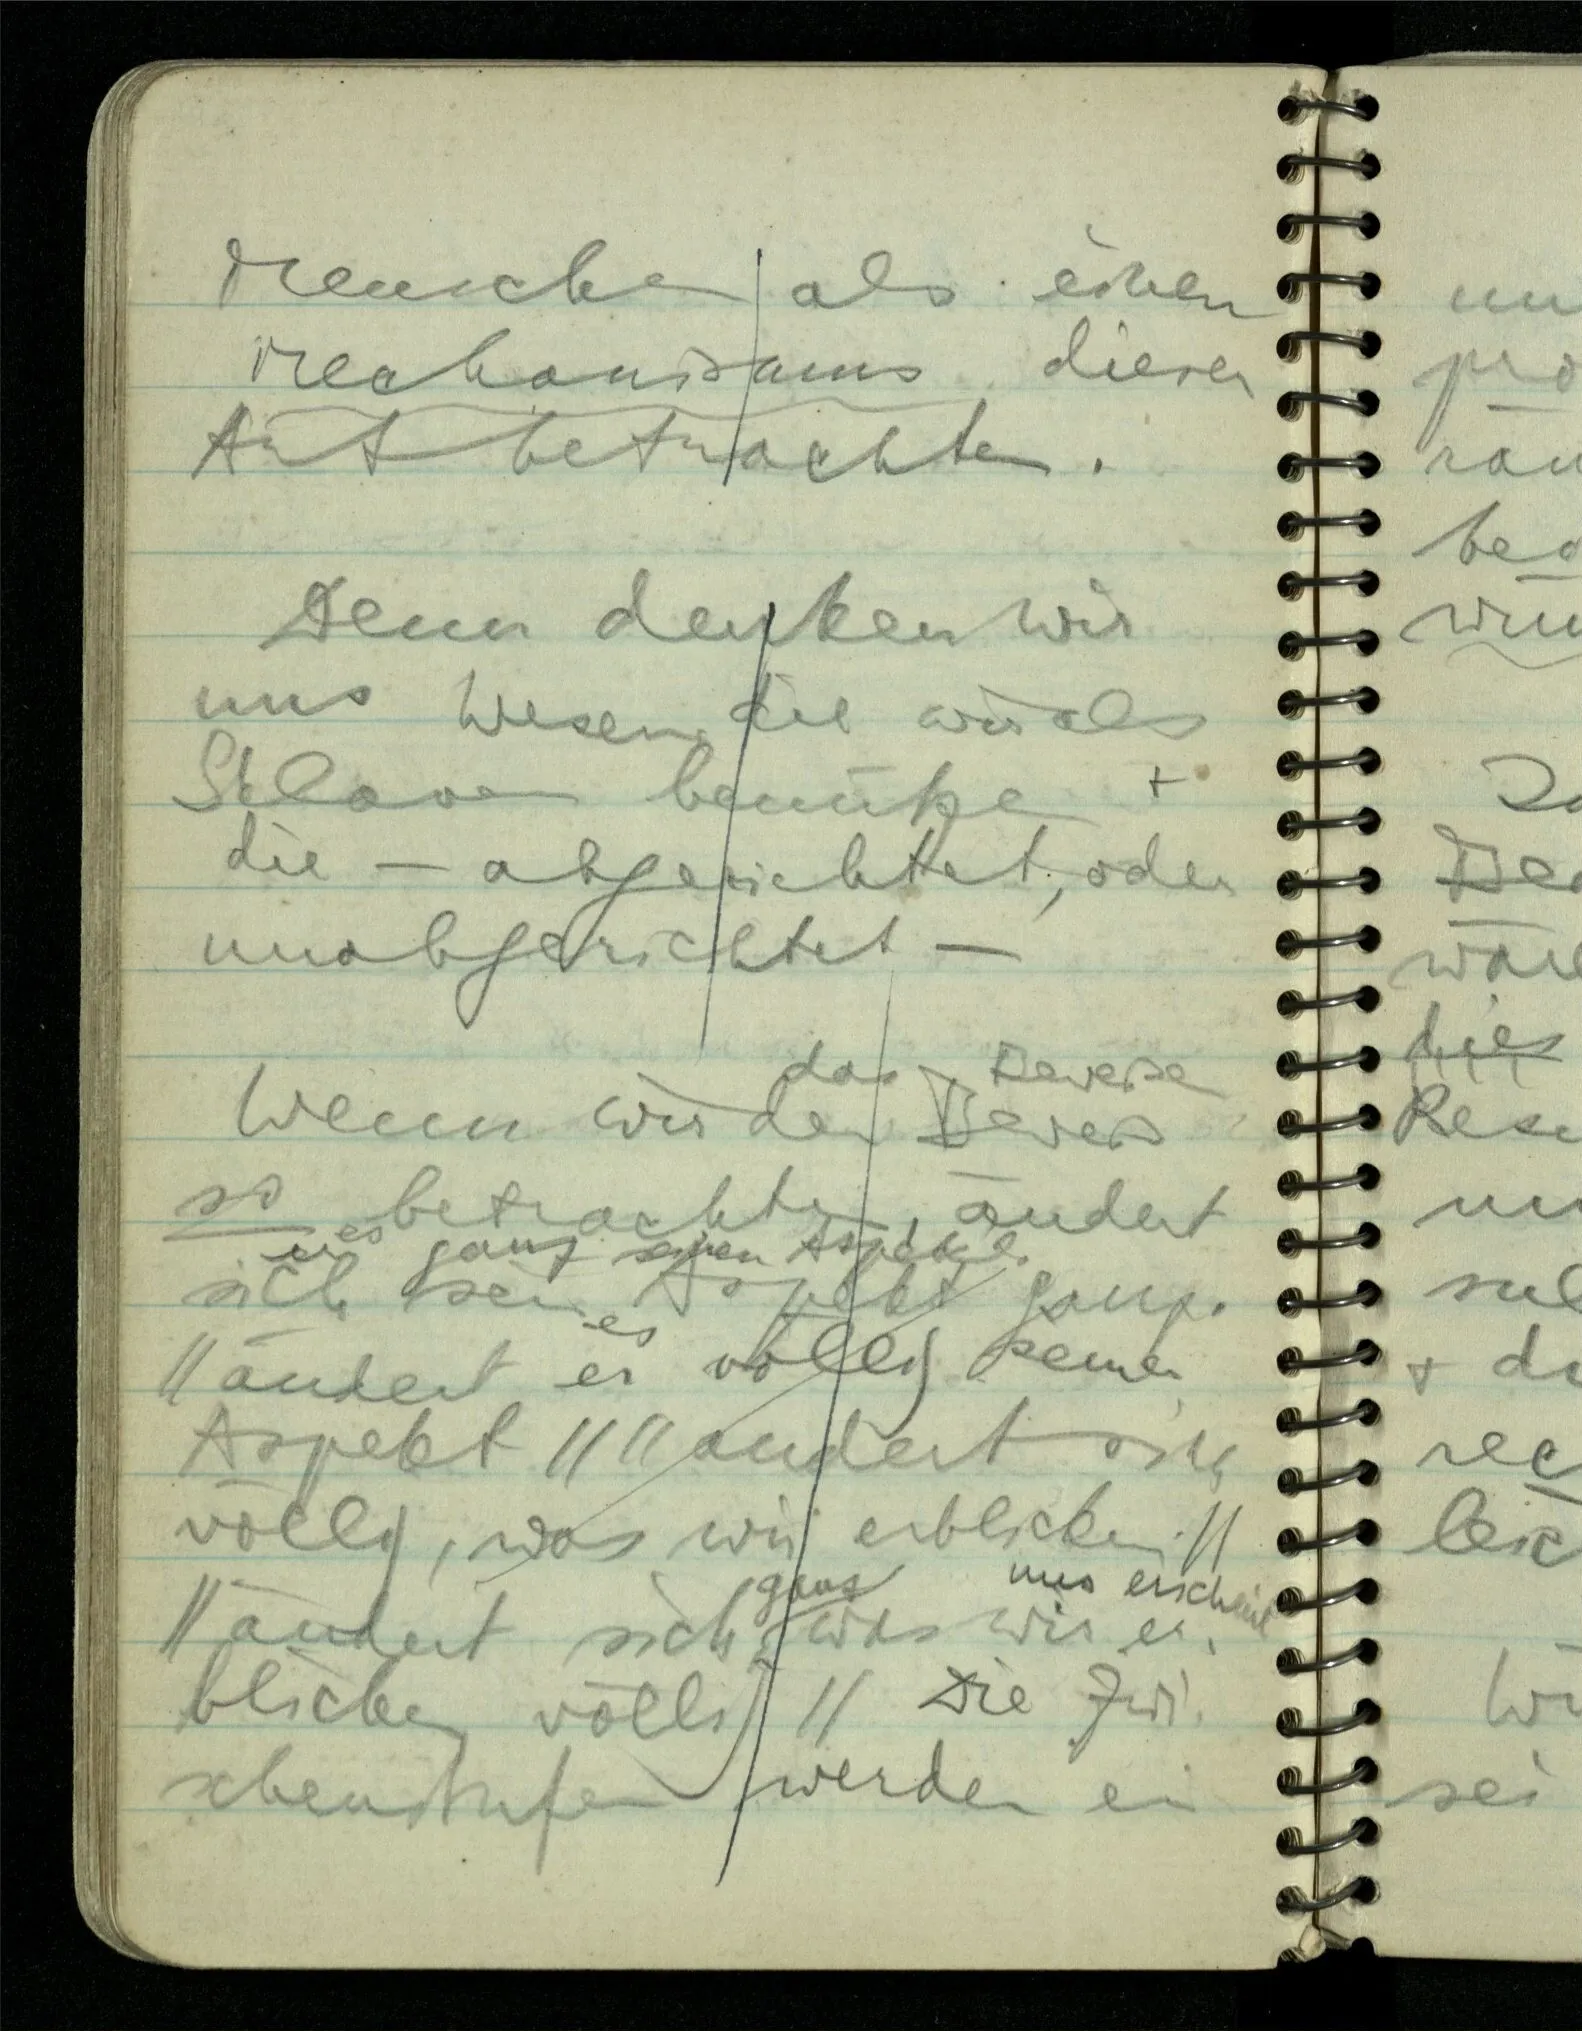 Menschen als einen
Mechanismus dieser
Art betrachten.
Denn denken wir
uns Wesen, die wir als
Sklaven benützen +
die – abgerichtet, oder
unabgerichtet –
das Beweisen
Wenn wir den Beweis
so betrachten, ändert
er es ganz seinen Aspekt.
sich sein Aspekt ganz.
es
// ändert er völlig seinen
Aspekt // // ändert sich
völlig, was wir erblicken. //
ganz uns erscheint
// ändert sich was wir er-
blicken völlig // Die Zwi-
schenstufen werden ein
un
pro
räu
be
wu
De
wäre
dies
Res
un
+ du
rec
leic
sei